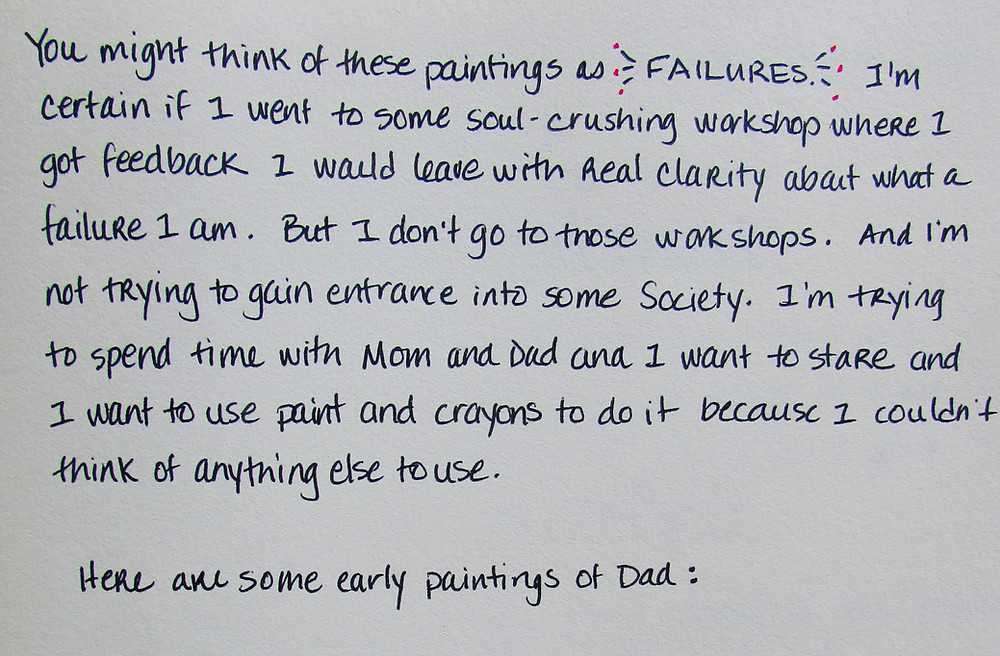 You might think of these paintings as FAILURES. I'm
certain if I went to some soul-crushing workshop where I
got feedback I would leave with real clarity about what a
failure I am. But I don't go to those workshops. And I'm
not trying to gain entrance into some Society. I'm trying
to spend time with Mom and Dad and I want to stare and
I want to use paint and crayons to do it because I couldn't
think of anything else to use.
Here are some early paintings of Dad: